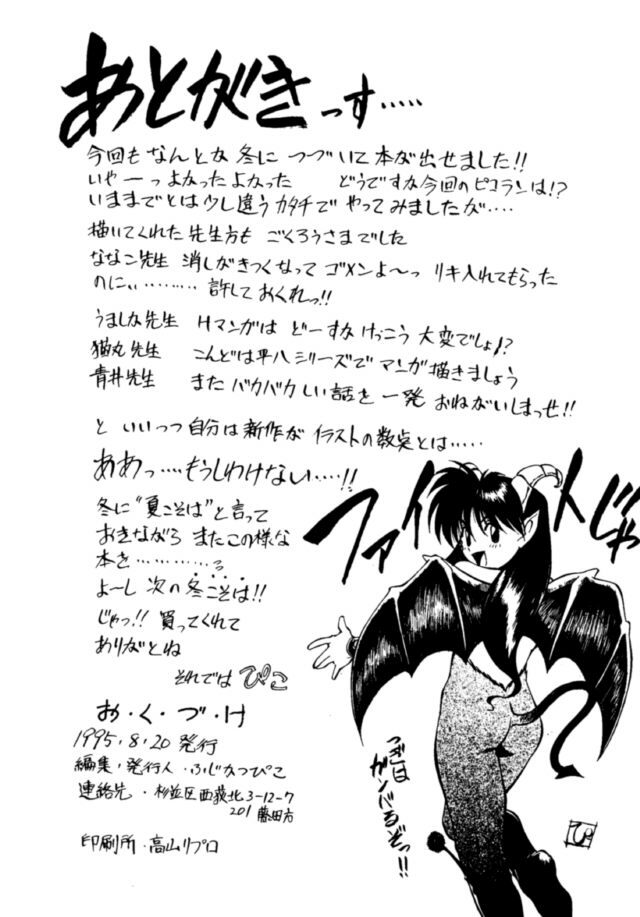 あとがきっす‥‥‥
今回もなんとな冬に つづいて本が出せました!!
いやーっ よかったよかった どうですな今回のピコランは!?
いままでとは少し違うカタチで やってみましたが‥‥
描いてくれた先生方も ごくろうさまでした
ななこ先生 消しがきつくなって ゴメンよ〜っ リキ入れてもらった
のにぃ‥‥‥‥‥ 許しておくれっ!!
うましな先生 Hマンガは どーすな けっこう 大変でしょ!?
猫丸先生 こんどは平八シリーズで マンガ描きましょう
青井先生 また バカバカしい話を 一発 おねがいしまっせ!!
と いいっつ 自分は新作が イラストの数点とは‥‥‥
ああっ‥‥もうしわけない‥‥‥!!
冬に“夏こそは”と言って
おきながら またこの様な
本を‥‥‥‥‥‥っ
よーし 次の冬こそは!!
じゃっ!! 買ってくれて
ありがとね
それでは ぴこ
お・く・づ・け
1995.8.20 発行
編集・発行人・ふじなつぴこ
連絡先・杉並区西荻北3-12-7
201 藤田方
印刷所・高山リプロ
ファイトじゃ
つぎは
ガンバるぞっ!!
ぴ